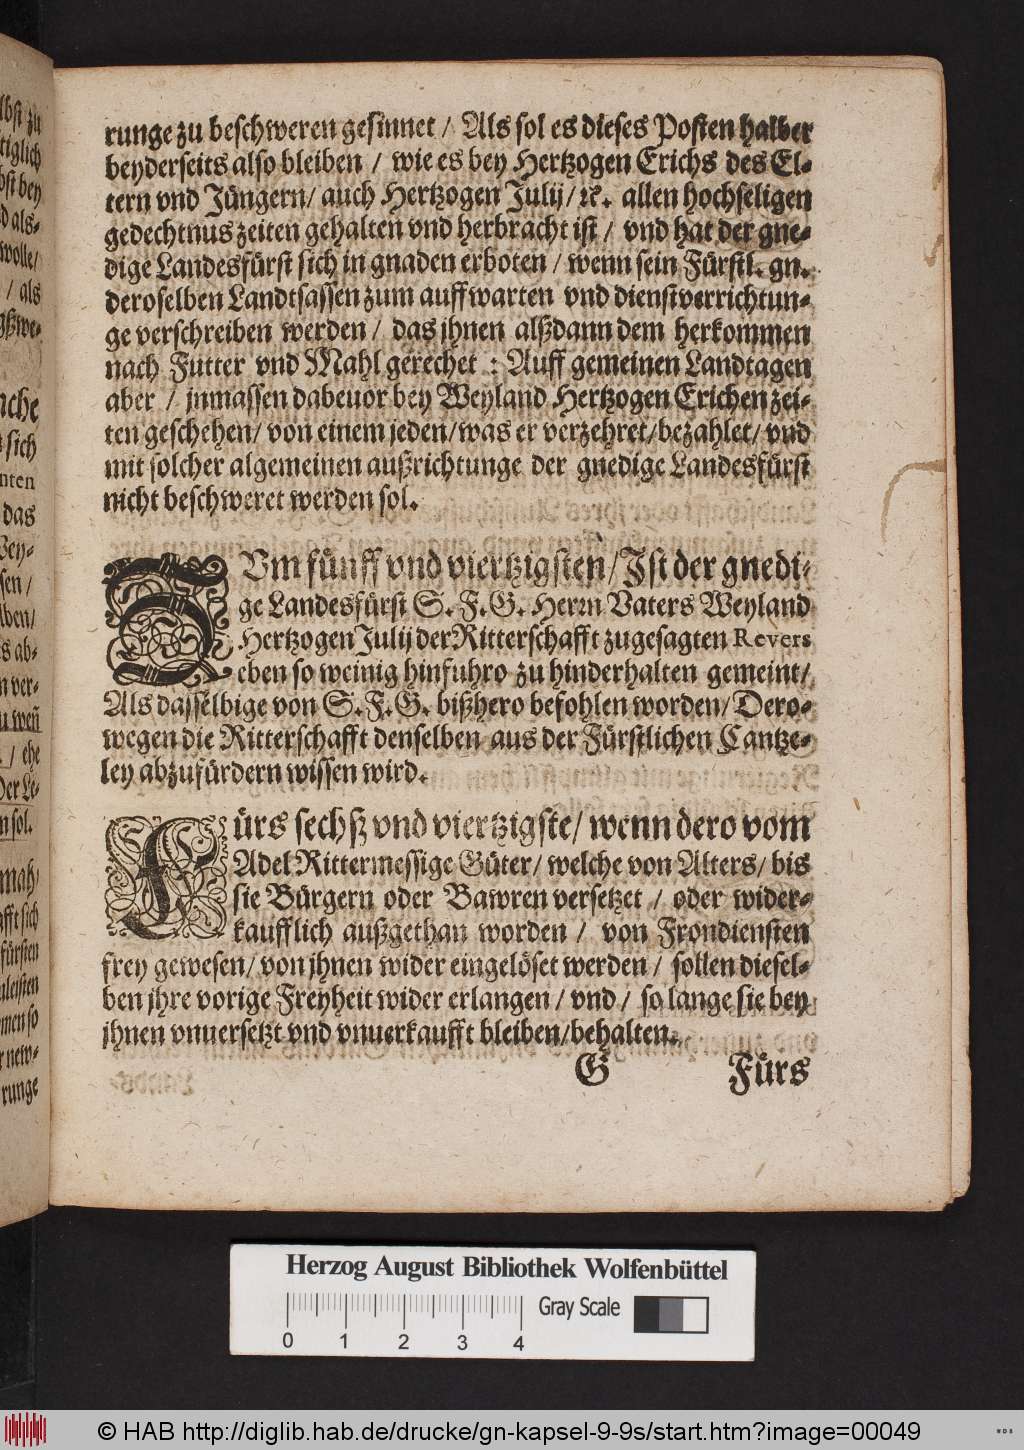 runge zu beschweren gesinnet / Als sol es dieses Posten halber
beyderseits also bleiben / wie es bey Hertzogen Erichs des El-
tern vnd Jüngern / auch Hertzogen Julij / ꝛc. allen hochseligen
gedechtnus zeiten gehalten vnd herbracht ist / vnd hat der gne-
dige Landesfürst sich in gnaden erboten / wenn sein Fürstl. gn.
deroselben Landtsassen zum auffwarten vnd dienstverrichtun-
ge verschreiben werden / das jhnen alßdann dem herkommen
nach Futter vnd Mahl gerechet : Auff gemeinen Landtagen
aber / jnmassen dabeuor bey Weyland Hertzogen Erichen zei-
ten geschehen / von einem jeden / was er verzehret / bezahlet / vnd
mit solcher algemeinen außrichtunge der gnedige Landesfürst
nicht beschweret werden sol.
ZVm fünff vnd viertzigsten / Ist der gnedi-
ge Landesfürst S. F. G. Herrn Vaters Weyland
Hertzogen Julij der Ritterschafft zugesagten Revers
eben so weinig hinfuhro zu hinderhalten gemeint /
Als dasselbige von S. F. G. bißhero befohlen worden / Dero-
wegen die Ritterschafft denselben aus der Fürstlichen Cantze-
ley abzufürdern wissen wird.
FÜrs sechß vnd viertzigste / wenn dero vom
Adel Rittermessige Güter / welche von Alters / bis
sie Bürgern oder Bawren versetzet / oder wider-
kaufflich außgethan worden / von Frondiensten
frey gewesen / von jhnen wider eingelöset werden / sollen diesel-
ben jhre vorige Freyheit wider erlangen / vnd / so lange sie bey
jhnen vnuersetzt vnd vnuerkaufft bleiben / behalten.
G Fürs
Herzog August Bibliothek Wolfenbüttel
Gray Scale
0 1 2 3 4
© HAB http://diglib.hab.de/drucke/gn-kapsel-9-9s/start.htm?image=00049